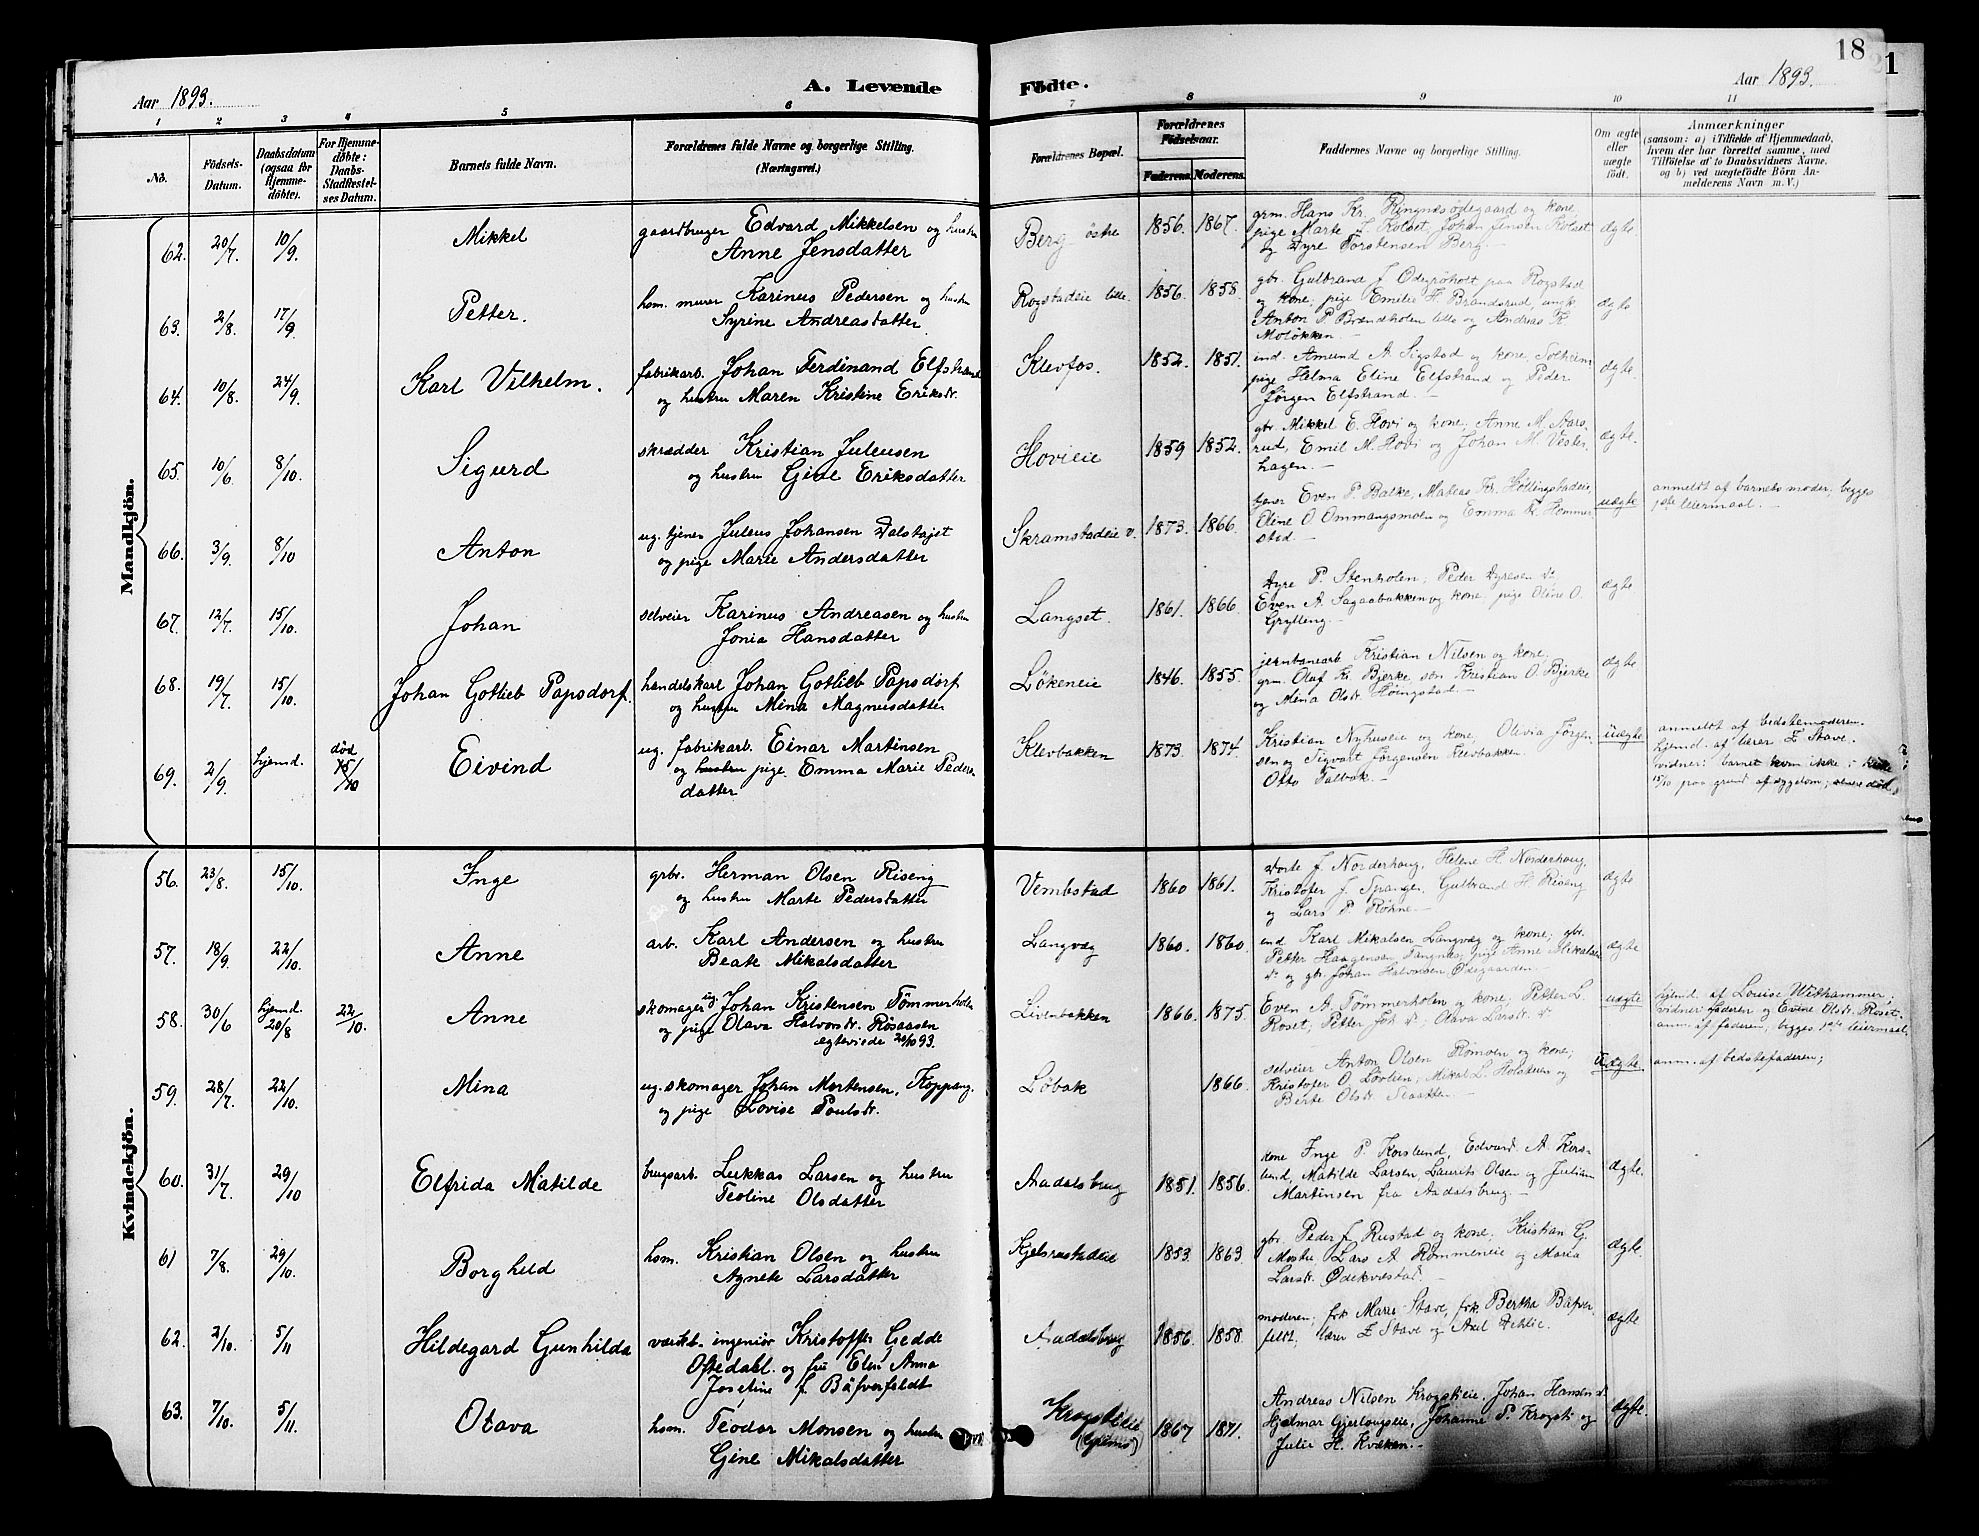 18
1
Aar 1893.
A. Levende Födte.
Aar 1893.
1 2 3 4 5 6 7 8 9 10 11
No.
Födsels-
Datum.
Daabsdatum
(ogsaa for
Hjemme-
döbte).
For Hjemme-
döbte:
Daabs-
Stadfæstel-
ses Datum.
Barnets fulde Navn.
Forældrenes fulde Navne og borgerlige Stilling.
(Næringsvei.)
Forældrenes Bopæl.
Forældrenes
Födselsaar.
Faderens. Moderens.
Faddernes Navne og borgerlige Stilling.
Om ægte
eller
uægte
födt.
Anmærkninger
(saasom: a) i Tilfælde af Hjemmedaab,
hvem der har forrettet samme, med
Tilföielse af to Daabsvidners Navne.
og b) ved uægtefödte Börn An-
melderens Navn m. V.)
Mandkjön.
62. 20/7. 10/9. Mikkel
gaardbruger Edvard Mikkelsen og hustru
Anne Jensdatter
Berg östre 1856. 1867.
grm. Hans Kr. Ringnæsödegaard og kone,
pige Marte J. Kolset, Johan Jensen Kolset
og Dyre Torstensen Berg. –
ægte
63. 2/8. 17/9. Petter.
hom. murer Karinus Pedersen og hustru
Syrine Andreasdatter.
Rogstadeie lille. 1856. 1858.
gbr. Gulbrand J. Oderöholt paa Rogstad
og kone; pige Emilie H. Brandsrud, ungk.
Anton P. Brændholen lille og Andreas K.
Molökken. –
ægte
64. 10/8. 24/9. Karl Vilhelm.
fabrikarb. Johan Ferdinand Elfstrand
og hustru Maren Kristine Eriksdr.
Klevfos. 1852. 1851.
ind. Amund A. Sigstad og kone, Solheim,
pige Helma Eline Elfstrand og Peder
Jörgen Elfstrand. –
ægte.
65. 10/6. 8/10. Sigurd
skrædder Kristian Juleusen
og hustru Gine Eriksdatter
Hovieie 1859 1852.
gbr. Mikkel E. Hovi og kone; Anne M. Aars-
rud, Emil M. Hovi og Johan M. Vesle-
hagen. –
ægte.
66. 3/9. 8/10 Anton
ug. tjener Juleus Johansen Dalshöjet
og pige Marie Andersdatter
Skramstadeie v. 1873. 1866.
tjener Even P. Balke, Mateas Kr. Höllingstadeie,
Eline O. Ommangsmoen og Emma K. Hommer-
stad. –
uægte
anmeldt af barnets moder; begges
1ste leiermaal. –
67. 12/7. 15/10. Johan
selveier Karinus Andreasen og hustru
Jonia Hansdatter
Langset. 1861. 1866.
Dyre P. Stenholen, Peder Dyresen do.
Even A. Sagaabakken og kone, pige Oline O.
Grylleng. –
ægte
68. 19/7. 15/10. Johan Gotlieb Papsdorf.
handelskarl Johan Gotlieb Papsdorf
og hustru Mina Magnusdatter
Lökeneie 1846. 1855.
jernbanearb. Kristian Nilsen og kone;
grm. Olaf K. Bjerke, sön Kristian O. Bjerke
og Mina Olsdr. Höingstad. –
ægte
69. 2/9. hjemd. död
15/10 Eivind
ug. fabrikarb. Einar Martinsen
og hustru pige Emma Marie Peders-
datter
Klevbakken 1873 1874
Kristian Nyhuseie og kone, Olivia Jörgen-
sen og Sigvart Jörgensen Klevbakken.
Otto Talbak. –
uægte
anmeldt af bedstemoderen.
hjemd. af lærer E. Stave.
vidner: barnet kom ikke i kirke
15/10 paa grund af sygdom; senere död.
Kvindekjön.
56. 23/8. 15/10. Inge
grbr. Herman Olsen Riseng
og hustru Marte Pedersdatter
Vembstad 1860 1861.
Dorte J. Norderhaug, Helene H. Norderhaug,
Kristofer J. Spranger, Gulbrand H. Riseng
og Lars P. Röhne. –
ægte
57. 18/9. 22/10. Anne
arb. Karl Andersen og hustru
Beate Mikalsdatter
Langvæg 1860. 1860.
ind. Karl Mikalsen Langvæg og kone; gbr.
Petter Haagensen Langnæs, pige Anne Mikalsen
do. og gbr. Johan Halvorsen Ödegaarden. –
ægte
58. 30/6 hjemd. 20/8 22/10. Anne
skomager ug. Johan Kristensen Tömmerholen
og pige Olava Halvorsdr. Rösaasen
ægteviede 20/10 93.
Livenbakken 1866. 1875.
Even A. Tömmerholen og kone; Petter L.
Roset, Petter Joh do; Olava Larsdr. do
uægte
hjemd. af Louise Withammer;
vidner: faderen og Evine Olsdr. Roset.
anm. af faderen, begges 1ste leiermaal.
59. 28/7. 22/10. Mina
ug. skomager Johan Mortensen, Koppang.
og pige Lovise Poulsdr.
Löbak 1866.
selveier Anton Olsen Römoen og kone;
Kristofer O. Lövlien; Mikal L. Holsteen og
Berte Olsdr. Slaatten. –
Uægte
anm. af bedstefaderen;
60. 31/7. 29/10 Elfrida Matilde
brugsarb. Lukkas Larsen og hustru
Teoline Olsdatter
Aadalsbrug 1851. 1856.
kone Inge P. Korslund, Edvard A. Kors-
lund, Matilde Larsen, Laurits Olsen og Julian
Martinsen fra Aadalsbrug. –
ægte.
61 7/8. 29/10. Borghild
hom. Kristian Olsen og hustru
Agnete Larsdatter
Kjelsrustadeie 1853 1863
gbr. Peder J. Rustad og kone, Kristian G.
Mostu, Lars A. Rommeneie og Maria
Larsdr. Ödekvestad. –
ægte.
62. 2/10. 5/11 Hildegard Gunhilda
værkst. ingeniör Kristoffer Gedde
Oftedahl. og fru Elen Anna
Josefine f. Bäfverfeldt
Aadalsbrug 1856 1858.
moderen; frk. Marie Stave, frk. Bertha Bäfver-
feldt, lærer E. Stave og Axel Dehlie. –
ægte
63. 7/10. 5/11. Otava
hom. Teodor Monsen og hustru
Gine Mikalsdatter
Krogstieie 1867 1871.
Andreas Nilsen Krogstieie, Johan Hansen do.
Hjelmar Gjerlougseie, Johanne P. Krogsti og
Julie H. Kvæken. –
ægte.